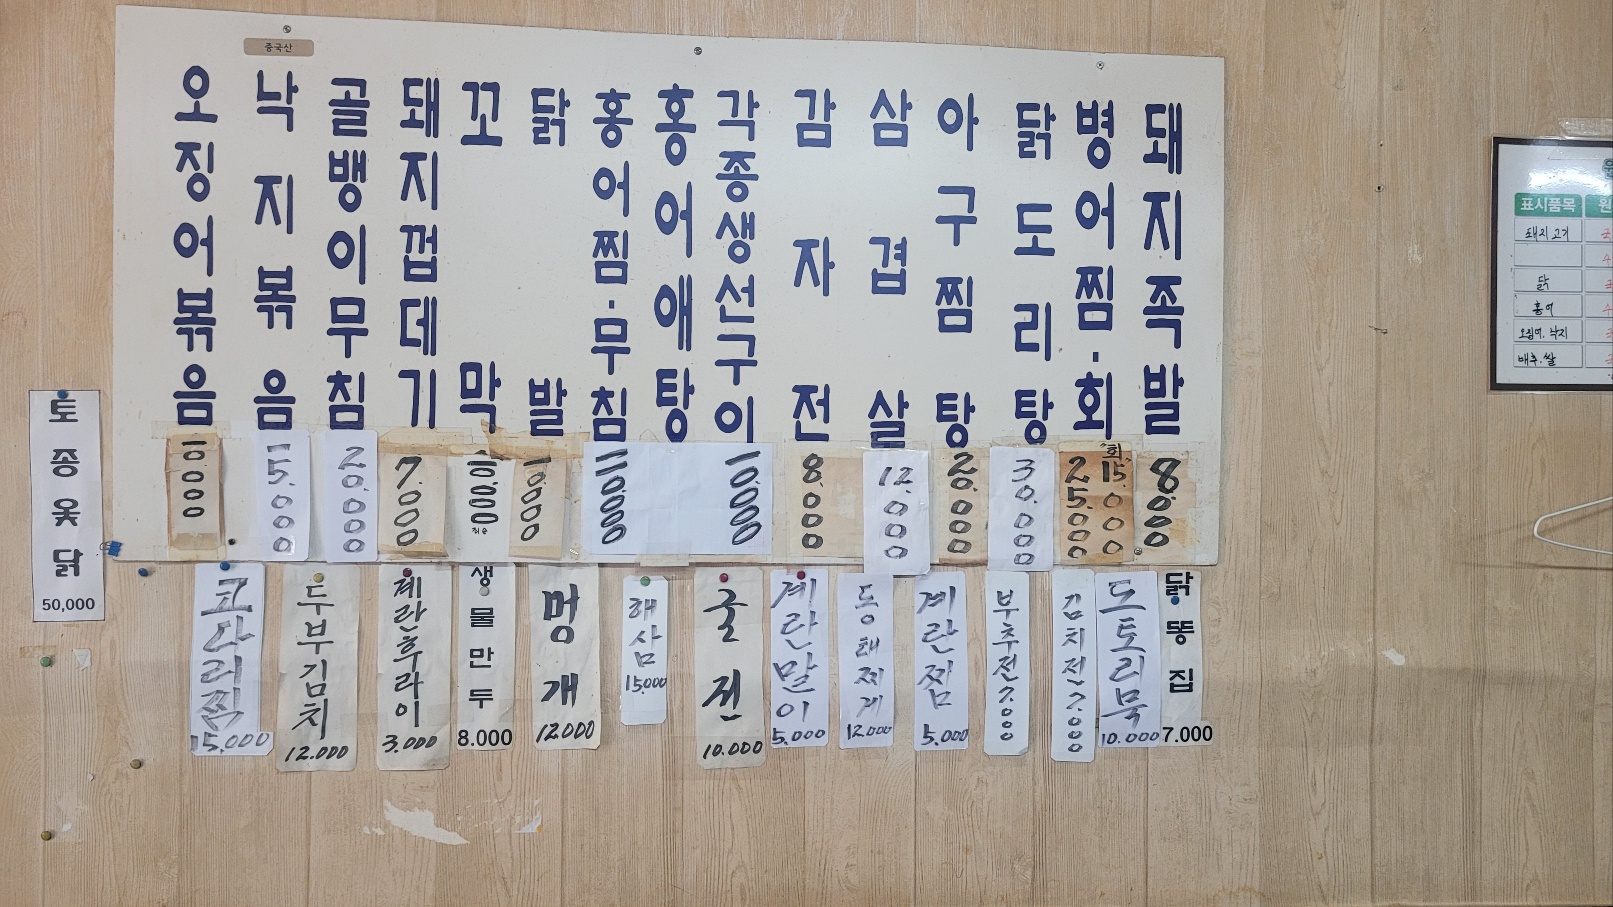 중국산
오징어볶음
낙지볶음
15.000
골뱅이무침
20.000
돼지껍데기
7.000
꼬막
닭발
홍어찜·무침
홍어애탕
각종생선구이
감자전
8.000
삼겹살
12.000
아구찜탕
20.000
닭도리탕
30.000
병어찜·회
25.000
"회"
15.000
돼지족발
8.000
토종옻닭
50,000
코다리찜
15.000
두부김치
12.000
계란후라이
3.000
생물만두
8.000
멍개
12.000
해삼
15.000
굴전
10.000
계란말이
5.000
동태찌게
12.000
계란찜
5.000
부추전
7.000
김치전
7.000
도토리묵
10.000
닭똥집
7.000
표시품목
원
돼지고기
닭
홍어
오징어, 낙지
배추, 쌀